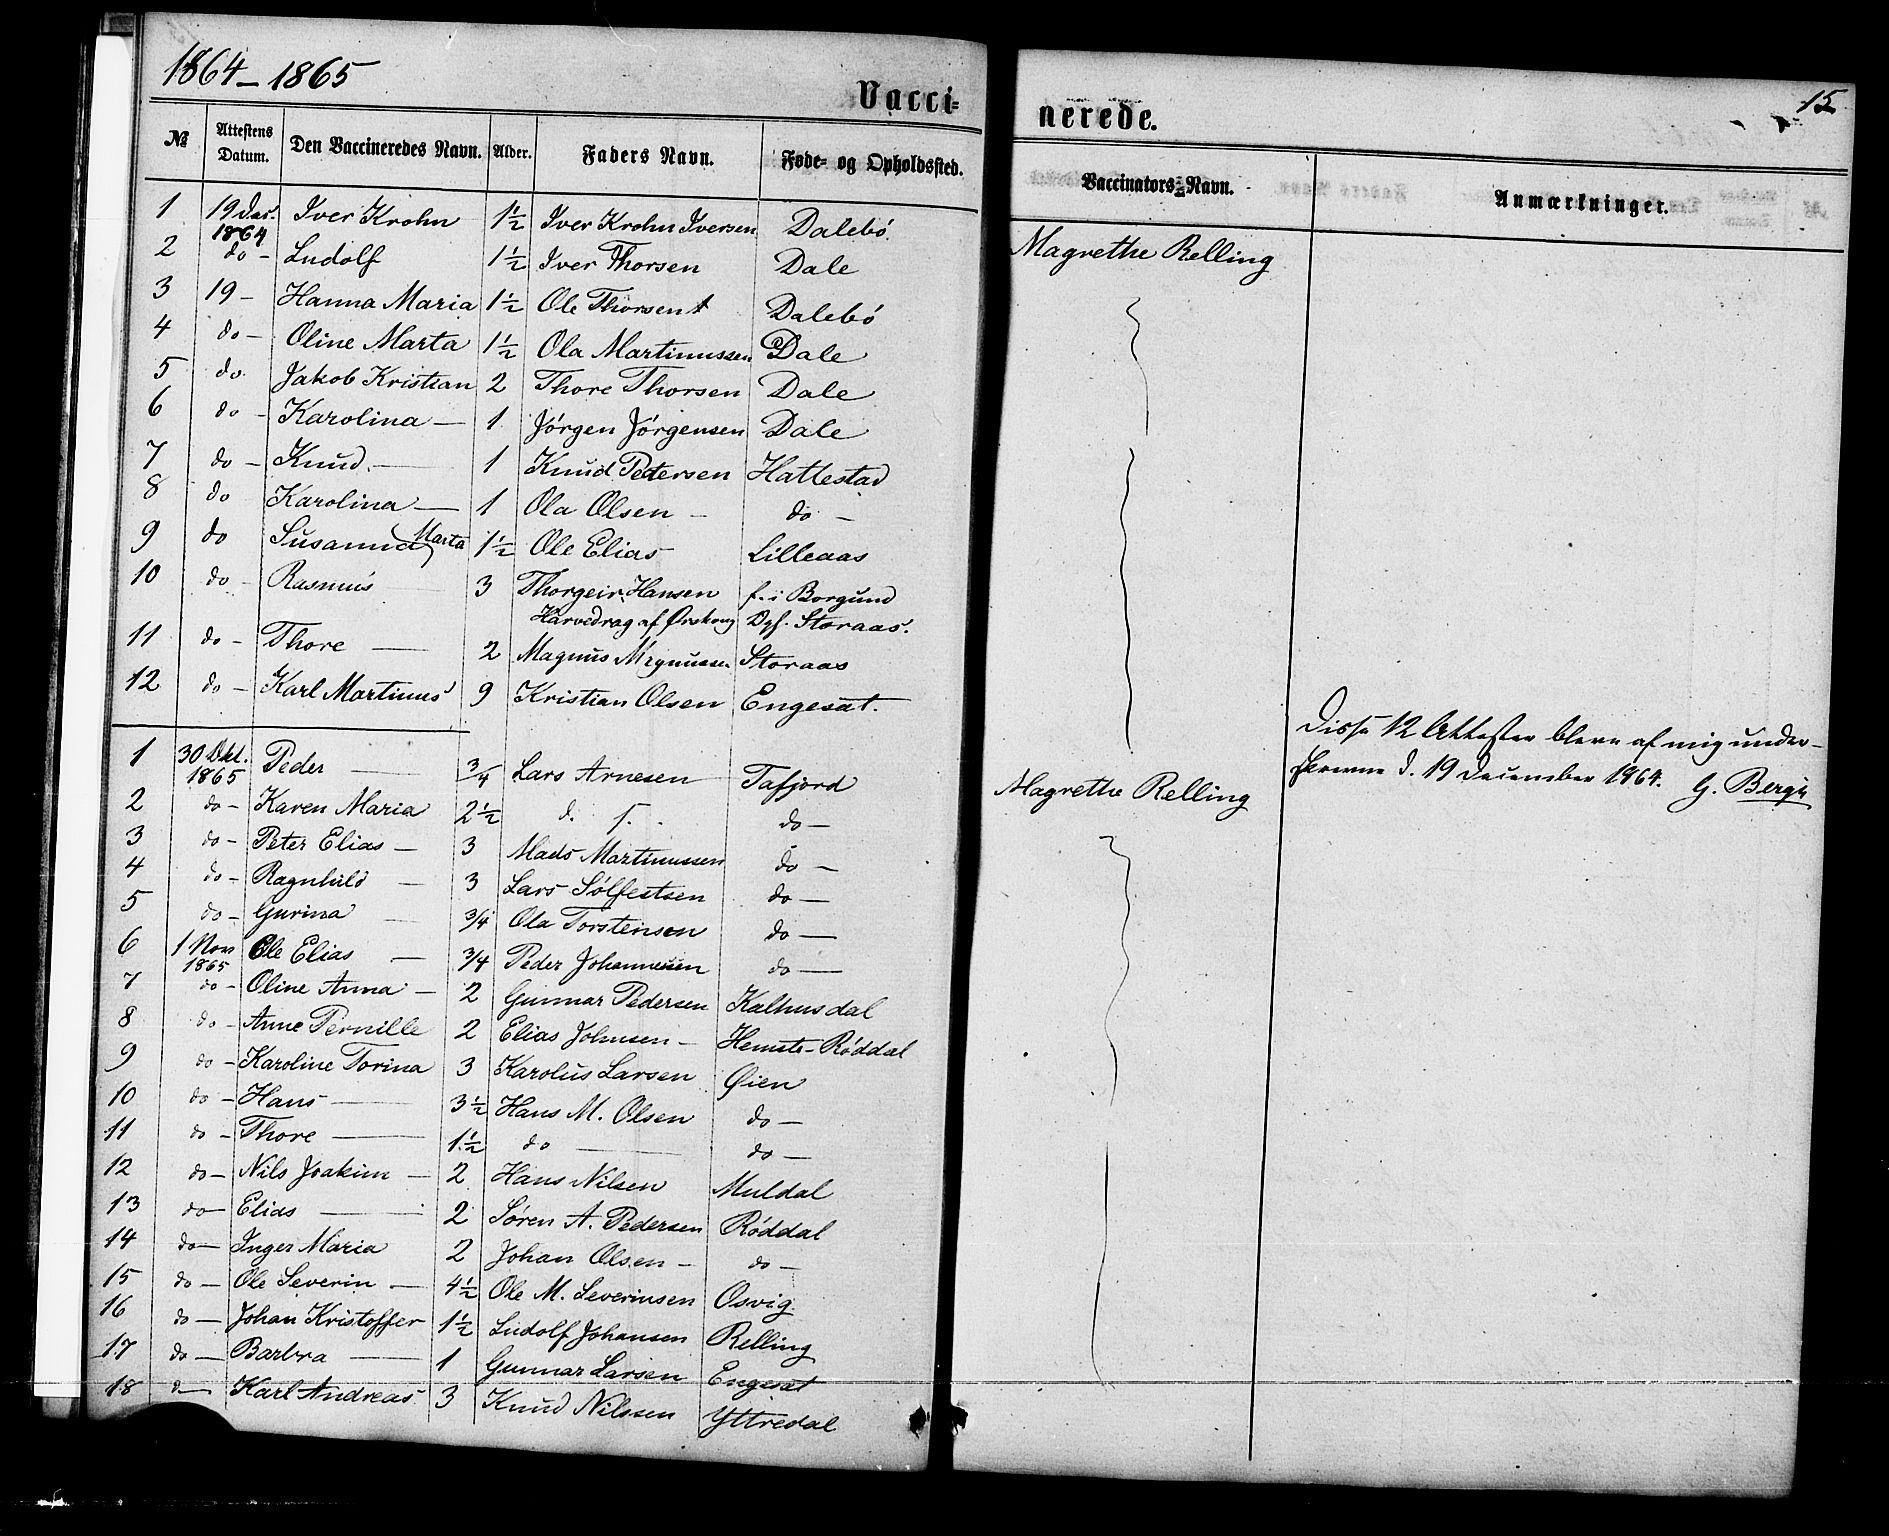 1864 – 1865
Vacci=
nerede.
15
№ Attestens Datum. Den Vaccineredes Navn. Alder. Faders Navn. Føde- og Opholdssted. Vaccinators-Navn. Anmærkninger.
1 19 Des. 1864 Iver Krohn 1½ Iver Krohn Iversen Dalebö Magrethe Relling
2 do – Ludolf 1½ Iver Thorsen Dale
3 19 – Hanna Maria 1½ Ole Thorsen † Dalebö
4 do – Oline Marta 1½ Ola Martinussen Dale
5 do Jakob Kristian 2 Thore Thorsen Dale
6 do – Karolina — 1 Jörgen Jörgensen Dale
7 do – Knud — 1 Knud Petersen Hattestad
8 do Karolina — 1 Ola Olsen – do –
9 do Susanna Marta 1½ Ole Elias Lilleaas
10 do – Rasmus 3 Thorgeir Hansen f. i Borgund
Harvedrag af Ørskoug Opf. Storaas.
11 do – Thore — 2 Magnus Magnussen Storaas
12 do – Karl Martinus 9 Kristian Olsen Engesæt.
Disse 12 Attester bleve af mig under-
skrevne d. 19 December 1864. G. Berge
1 30 Okt. 1865 Peder — ¾ Lars Arnesen Tafjord Magrethe Relling
2 do – Karen Maria 2½ d. s. do –
3 do – Peter Elias – 3 Mads Martinussen do –
4 do – Ragnhild — 3 Lars Sölfestsen do –
5 do – Gurina — 3/4 Ola Torstensen do —
6 1 Nov 1865 Ole Elias — 3/4 Peder Johannessen do —
7 do – Oline Anna – 2 Gunnar Pedersen Kalhusdal
8 do – Anne Pernille 2 Elias Johnsen – Hemste-Röddal
9 do – Karoline Torina 3 Karolus Larsen Øien
10 do – Hans — 3½ Hans M. Olsen do –
11 do – Thore — 1½ do — do –
12 do – Nils Joakim – 2 Hans Nilsen Muldal
13 do – Elias — 2 Sören A. Pedersen Röddal
14 do – Inger Maria 2 Johan Olsen – do –
15 do – Ole Severin — 4½ Ole M. Severinsen Osvig
16 do – Johan Kristoffer 1½ Ludolf Johansen Relling
17 do – Barbra — 1 Gunnar Larsen Engesæt
18 d – Karl Andreas 3 Knud Nilssen Yttredal